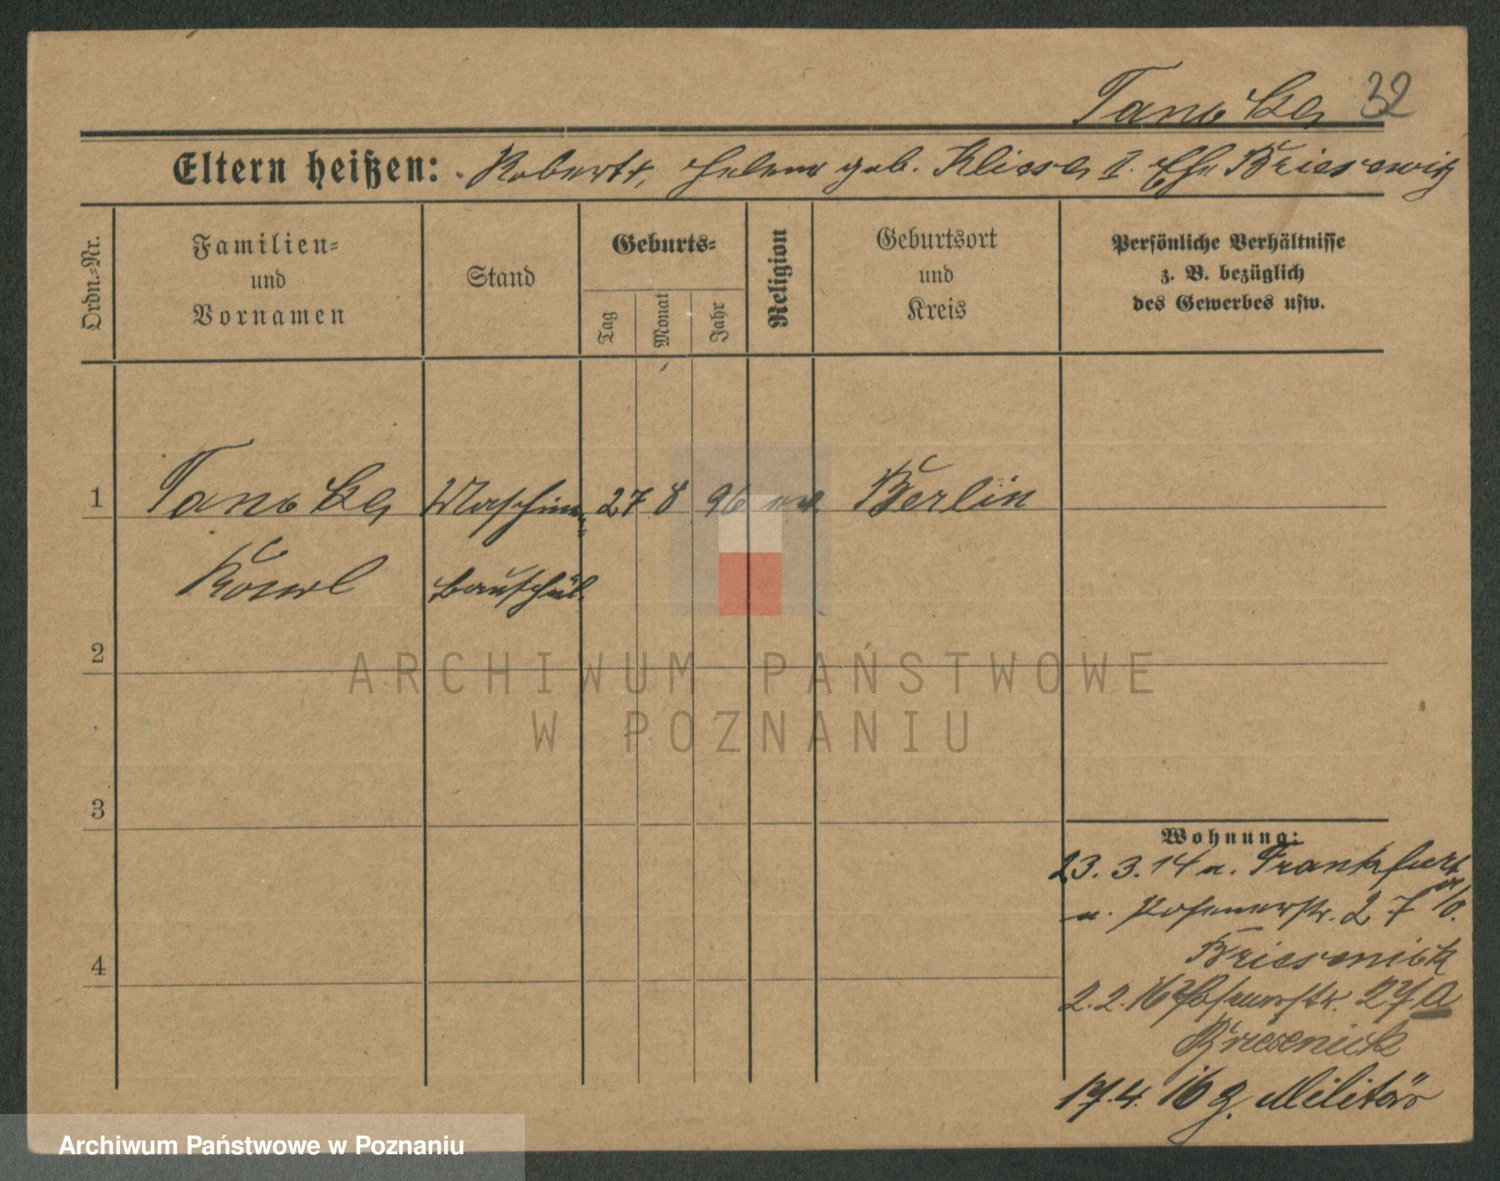 Tancke 32
Eltern heißen: Robert †, Helene geb. Kliese II. Ehe Briesewitz
Ordn.-Nr.
Familien-
und
Vornamen
Stand
Geburts-
Tag
Monat
Jahr
Religion
Geburtsort
und
Kreis
Persönliche Verhältnisse
z. B. bezüglich
des Gewerbes usw.
1 Maschinen- 27 8 96 ev. Berlin
bauschül.
2
3
4
Wohnung:
23. 3. 14 a. Frankfurt a/O.
n. Posenerstr. 27
2. 2. 16 Posenerstr. 27 a
17. 4. 16 z. Militär
ARCHIWUM PAŃSTWOWE
W POZNANIU
Archiwum Państwowe w Poznaniu